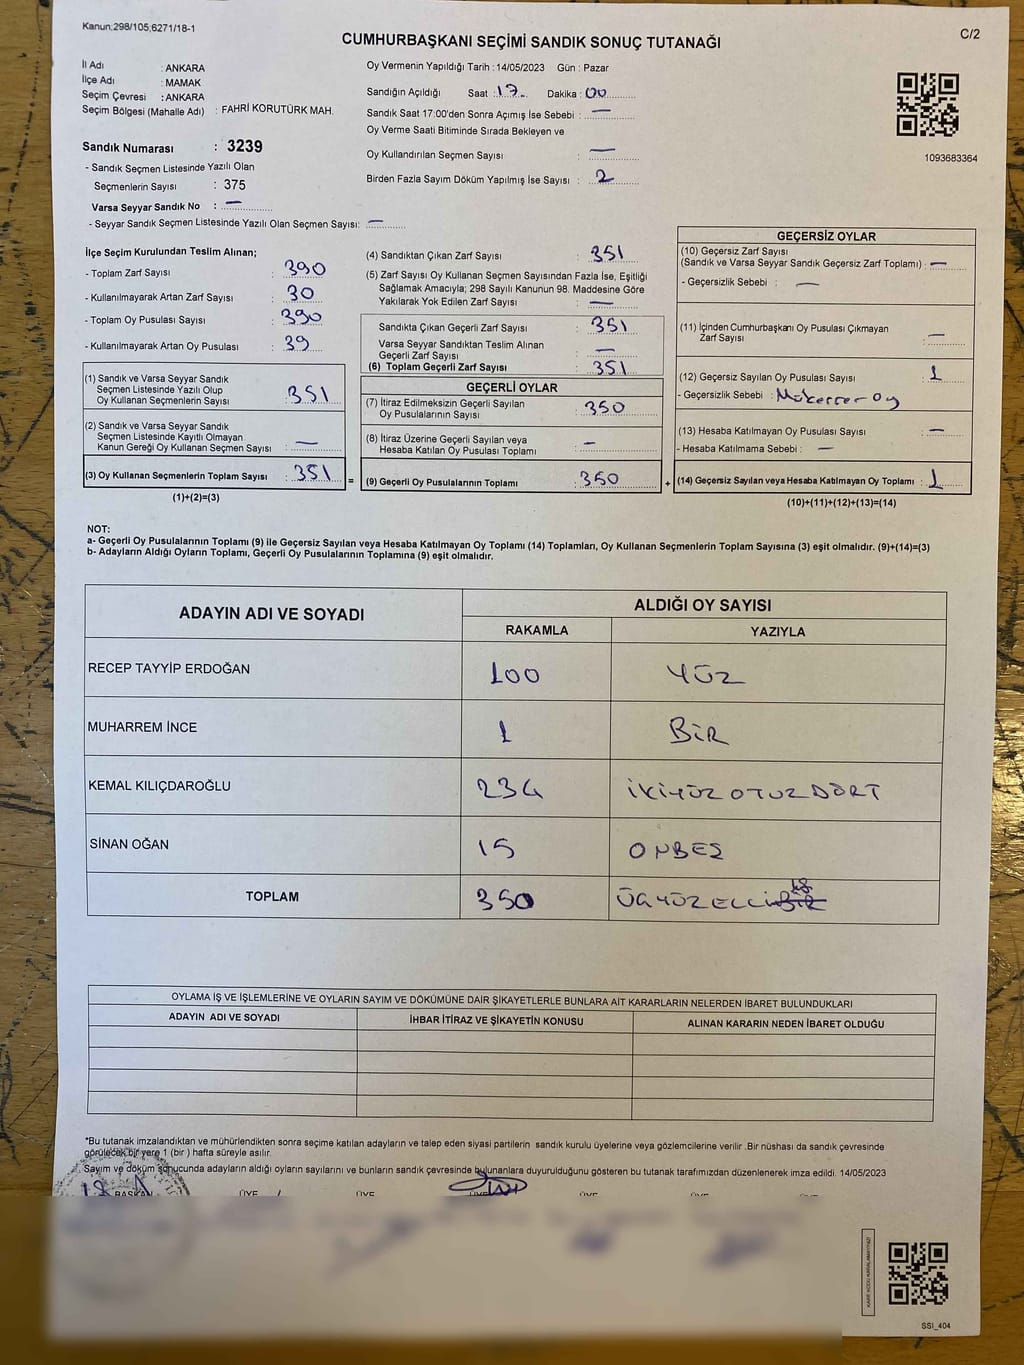 Kanun;298/105;6271/18-1
C/2
CUMHURBAŞKANI SEÇİMİ SANDIK SONUÇ TUTANAĞI
İl Adı : ANKARA
İlçe Adı : MAMAK
Seçim Çevresi : ANKARA
Seçim Bölgesi (Mahalle Adı) : FAHRİ KORUTÜRK MAH.
Sandık Numarası : 3239
- Sandık Seçmen Listesinde Yazılı Olan
Seçmenlerin Sayısı : 375
Varsa Seyyar Sandık No : —
- Seyyar Sandık Seçmen Listesinde Yazılı Olan Seçmen Sayısı: —
Oy Vermenin Yapıldığı Tarih : 14/05/2023 Gün : Pazar
Sandığın Açıldığı Saat : 17 Dakika : 00
Sandık Saat 17:00'den Sonra Açımış İse Sebebi : —
Oy Verme Saati Bitiminde Sırada Bekleyen ve
Oy Kullandırılan Seçmen Sayısı : —
Birden Fazla Sayım Döküm Yapılmış İse Sayısı : 2
1093683364
İlçe Seçim Kurulundan Teslim Alınan;
- Toplam Zarf Sayısı : 390
- Kullanılmayarak Artan Zarf Sayısı : 30
- Toplam Oy Pusulası Sayısı : 390
- Kullanılmayarak Artan Oy Pusulası : 39
(1) Sandık ve Varsa Seyyar Sandık
Seçmen Listesinde Yazılı Olup
Oy Kullanan Seçmenlerin Sayısı : 351
(2) Sandık ve Varsa Seyyar Sandık
Seçmen Listesinde Kayıtlı Olmayan
Kanun Gereği Oy Kullanan Seçmen Sayısı : —
(3) Oy Kullanan Seçmenlerin Toplam Sayısı : 351
(1)+(2)=(3)
(4) Sandıktan Çıkan Zarf Sayısı : 351
(5) Zarf Sayısı Oy Kullanan Seçmen Sayısından Fazla İse, Eşitliği
Sağlamak Amacıyla; 298 Sayılı Kanunun 98. Maddesine Göre
Yakılarak Yok Edilen Zarf Sayısı : —
Sandıkta Çıkan Geçerli Zarf Sayısı : 351
Varsa Seyyar Sandıktan Teslim Alınan
Geçerli Zarf Sayısı : —
(6) Toplam Geçerli Zarf Sayısı : 351
GEÇERLİ OYLAR
(7) İtiraz Edilmeksizin Geçerli Sayılan
Oy Pusulalarının Sayısı : 350
(8) İtiraz Üzerine Geçerli Sayılan veya
Hesaba Katılan Oy Pusulası Toplamı : —
= (9) Geçerli Oy Pusulalarının Toplamı : 350 +
GEÇERSİZ OYLAR
(10) Geçersiz Zarf Sayısı
(Sandık ve Varsa Seyyar Sandık Geçersiz Zarf Toplamı) : —
- Geçersizlik Sebebi : —
(11) İçinden Cumhurbaşkanı Oy Pusulası Çıkmayan
Zarf Sayısı : —
(12) Geçersiz Sayılan Oy Pusulası Sayısı : 1
- Geçersizlik Sebebi : Mükerrer oy
(13) Hesaba Katılmayan Oy Pusulası Sayısı : —
- Hesaba Katılmama Sebebi : —
(14) Geçersiz Sayılan veya Hesaba Katılmayan Oy Toplamı : 1
(10)+(11)+(12)+(13)=(14)
NOT:
a- Geçerli Oy Pusulalarının Toplamı (9) ile Geçersiz Sayılan veya Hesaba Katılmayan Oy Toplamı (14) Toplamları, Oy Kullanan Seçmenlerin Toplam Sayısına (3) eşit olmalıdır. (9)+(14)=(3)
b- Adayların Aldığı Oyların Toplamı, Geçerli Oy Pusulalarının Toplamına (9) eşit olmalıdır.
ADAYIN ADI VE SOYADI
ALDIĞI OY SAYISI
RAKAMLA YAZIYLA
RECEP TAYYİP ERDOĞAN 100 YÜZ
MUHARREM İNCE 1 BİR
KEMAL KILIÇDAROĞLU 234 İKİYÜZOTUZDÖRT
SİNAN OĞAN 15 ONBEŞ
TOPLAM 350 ÜÇYÜZELLİBİR
OYLAMA İŞ VE İŞLEMLERİNE VE OYLARIN SAYIM VE DÖKÜMÜNE DAİR ŞİKAYETLERLE BUNLARA AİT KARARLARIN NELERDEN İBARET BULUNDUKLARI
ADAYIN ADI VE SOYADI İHBAR İTİRAZ VE ŞİKAYETİN KONUSU ALINAN KARARIN NEDEN İBARET OLDUĞU
*Bu tutanak imzalandıktan ve mühürlendikten sonra seçime katılan adayların ve talep eden siyasi partilerin sandık kurulu üyelerine veya gözlemcilerine verilir .Bir nüshası da sandık çevresinde
görülecek bir yere 1 (bir ) hafta süreyle asılır.
Sayım ve döküm sonucunda adayların aldığı oyların sayılarını ve bunların sandık çevresinde bulunanlara duyurulduğunu gösteren bu tutanak tarafımızdan düzenlenerek imza edildi. 14/05/2023
BAŞKAN ÜYE ÜYE ÜYE ÜYE ÜYE
SSI_404